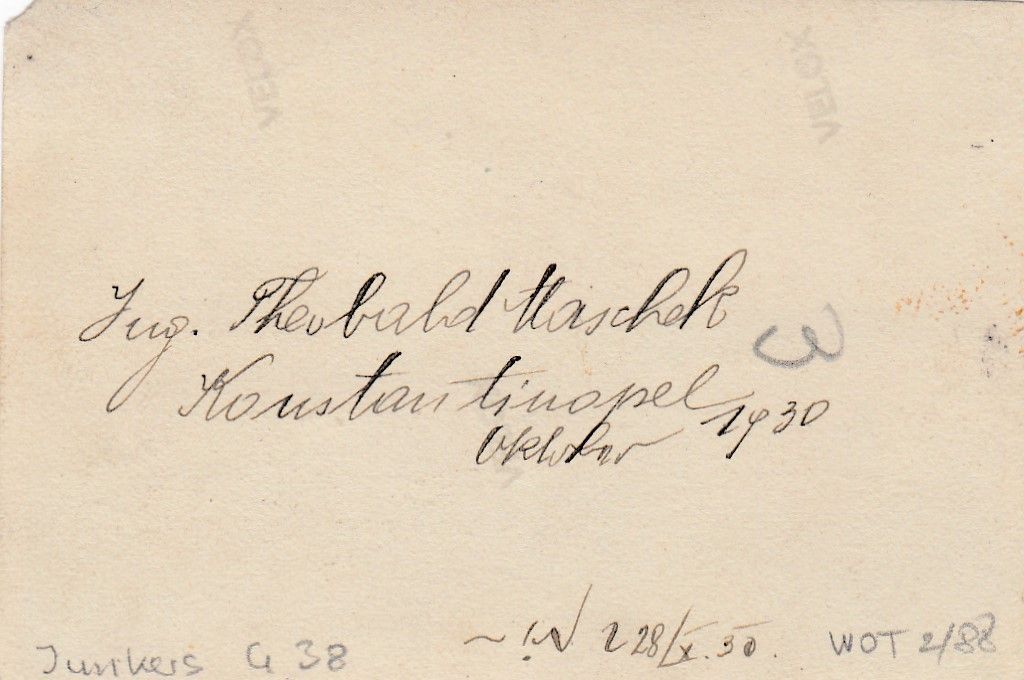 VELOX VELOX
Ing. Theobald Maschek
3
Konstantinopel 1930
Oktober
28/X.30.
Junkers G 38
WOT 2/88